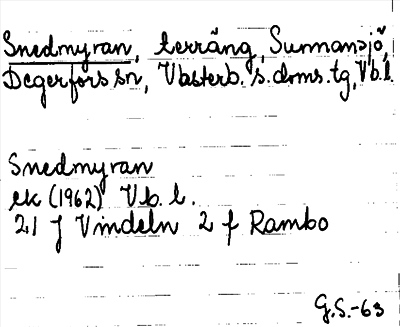 Snedmyran, terräng, Sunnansjö,
Degerfors sn, Västerb. s. doms. tg, Vb. l.
Snedmyran
ek (1962) Vb. l.
21 J Vindeln 2 f Rambo
G.S.-63